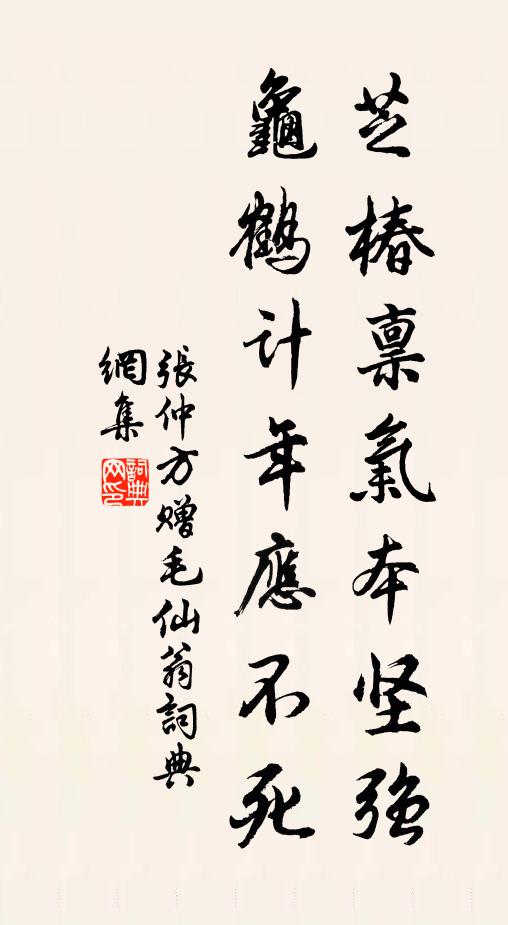 芝椿禀氣本坚强
龜鶴计年應不死
張仲方赠毛仙翁詞典
網集
詞典
网印